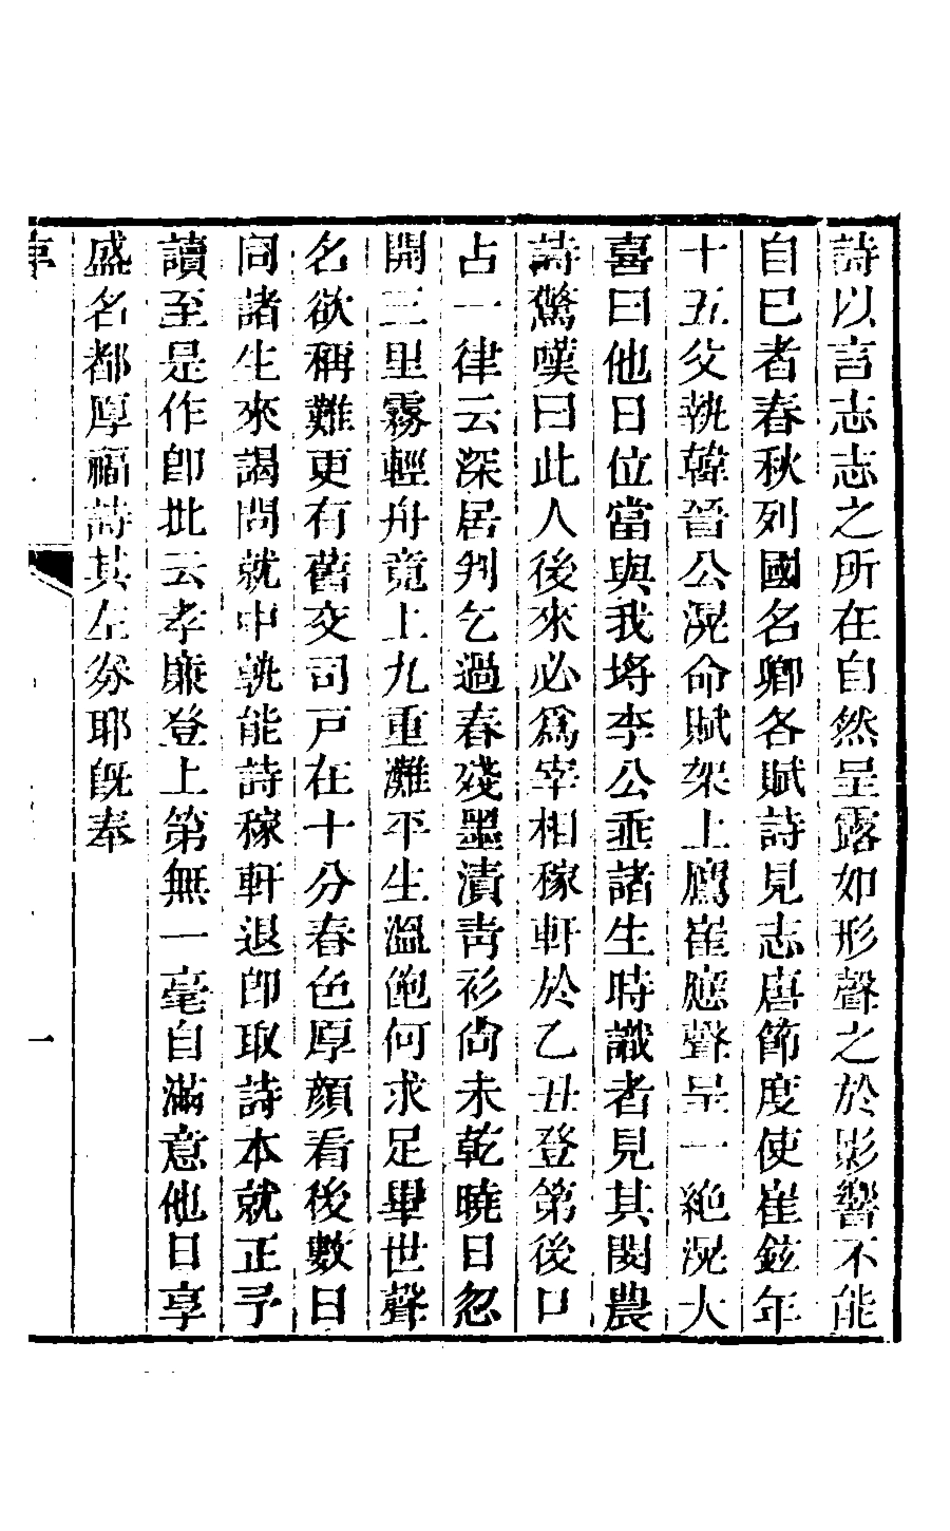 詩以言志志之所在自然呈露如形聲之於影響不能
自已者春秋列國名卿各賦詩見志唐節度使崔鉉年
十五父執韓晉公滉命賦架上鷹崔應聲呈一絶滉大
喜曰他日位當與我埓李公垂諸生時識者見其閔農
詩驚嘆曰此人後來必爲宰相稼軒於乙丑登第後口
占一律云深居判乞過春殘墨漬靑衫尙未乾曉日忽
開三里霧輕舟竟上九重灘平生溫飽何求足畢世聲
名欲稱難更有舊交司戸在十分春色厚顔看後數日
同諸生來謁問就中孰能詩稼軒退卽取詩本就正予
讀至是作卽批云孝廉登上第無一毫自滿意他日享
盛名都厚福詩其左券耶旣奉
序
一